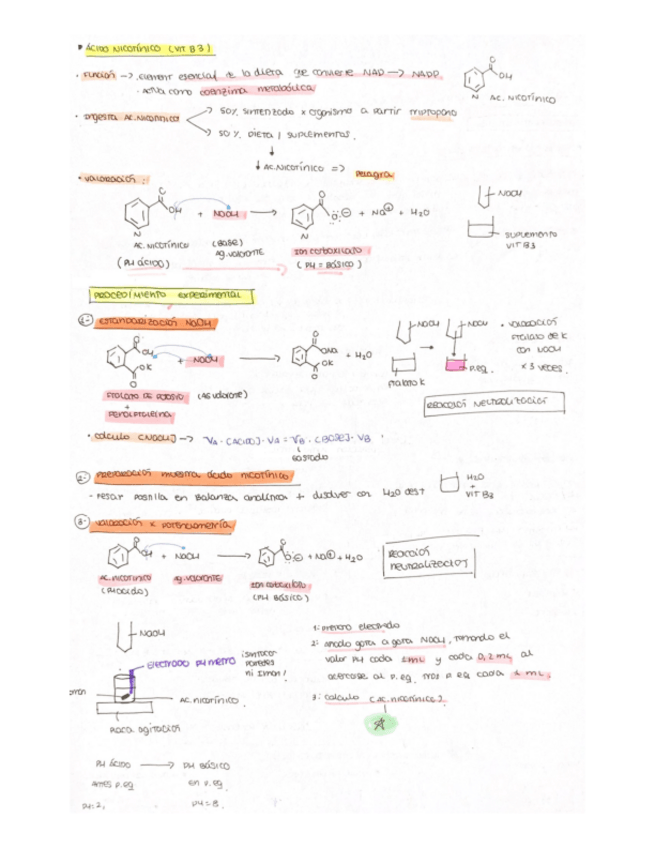 ÁCIDO NICOTÍNICO (VIT B3)
· Función -> · element esencial de la dieta que convierte NAD -> NADP
· Actúa como coenzima metabólica
OH
N
AC. NICOTÍNICO
· Ingesta AC.Nicotínico
50% sintetizado x organismo a partir triptófano
50% Dieta / suplementos.
↓ AC.NICOTÍNICO => Pelagra
· VALORACIÓN :
OH + NaOH -> O⊖ + Na⊕ + H2O
N N
AC. NICOTÍNICO (BASE) ion carboxilato
Ag. valorante
(PH ÁCIDO) (PH = BÁSICO)
NaOH
suplemento
VIT B3
PROCEDIMIENTO EXPERIMENTAL
1- ESTANDARIZACIÓN NaOH
OH + NaOH -> ONa + H2O
OK OK
FTALATO DE POTASIO (AG valorante)
+
FENOLFTALEÍNA
NaOH NaOH
ftalato K P.eq.
· valoración
ftalato de K
con NaOH
x 3 veces.
REACCIÓN NEUTRALIZACIÓN
· cálculo [NaOH] -> VA · [ACIDO] · VA = VB · [BASE] · VB
gastado
2- PREPARACIÓN muestra ácido nicotínico
- Pesar pastilla en Balanza analítica + disolver con H2O dest
H2O
+
VIT B3
3- VALORACIÓN x potenciometría
OH + NaOH -> O⊖ + Na⊕ + H2O
AC.nicotínico Ag.valorante ion carboxilato
(PH ácido) (PH BÁSICO)
REACCIÓN
NEUTRALIZACIÓN
NaOH
ELECTRODO PH metro
¡sin tocar
paredes
ni imán!
imán
AC.NICOTÍNICO.
Placa agitación
1: preparo electrodo
2: añado gota a gota NaOH, tomando el
valor PH cada 1mL y cada 0,2 mL al
acercarse al P.eq, tras P.eq cada 1 mL.
3: cálculo [AC.nicotínico].
PH ÁCIDO -> PH BÁSICO
antes P.eq en P.eq.
PH: 2, PH = 8.